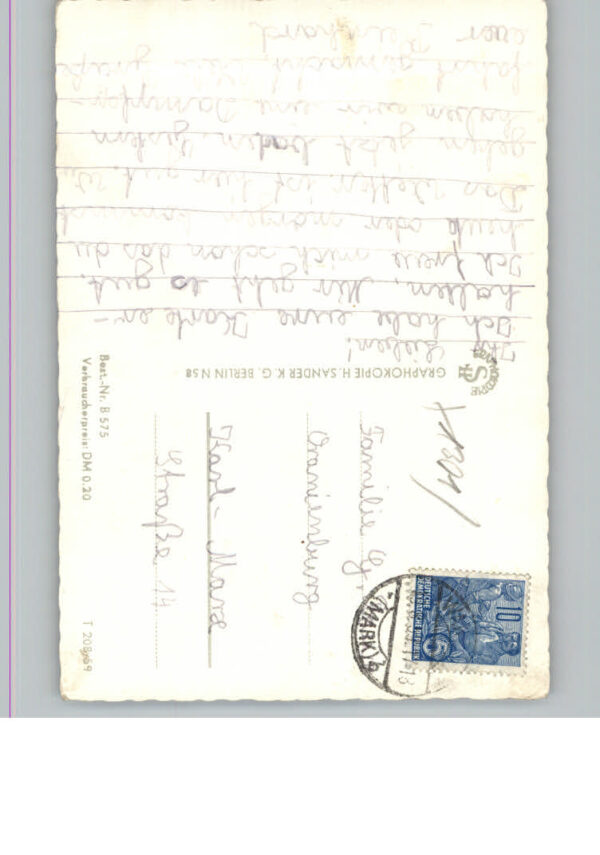 Ihr Lieben!
Ich habe eine Karte er-
halten. Mir geht es gut.
Ich freue mich schon das du
heut oder morgen kommst
Das Wetter ist hier gut. Wir
gehen jetzt baden. Gestern
haben wir eine Dampfer-
fahrt gemacht. grüße
euer
GRAPHOKOPIE H. SANDER K. G. BERLIN N 58
Best.-Nr. B 575
Verbraucherpreis: DM 0.20
T 208/69
Familie
Oranienburg
Karl-Marx
Straße 14
10
DEUTSCHE
DEMOKRATISCHE REPUBLIK
(MARK) b